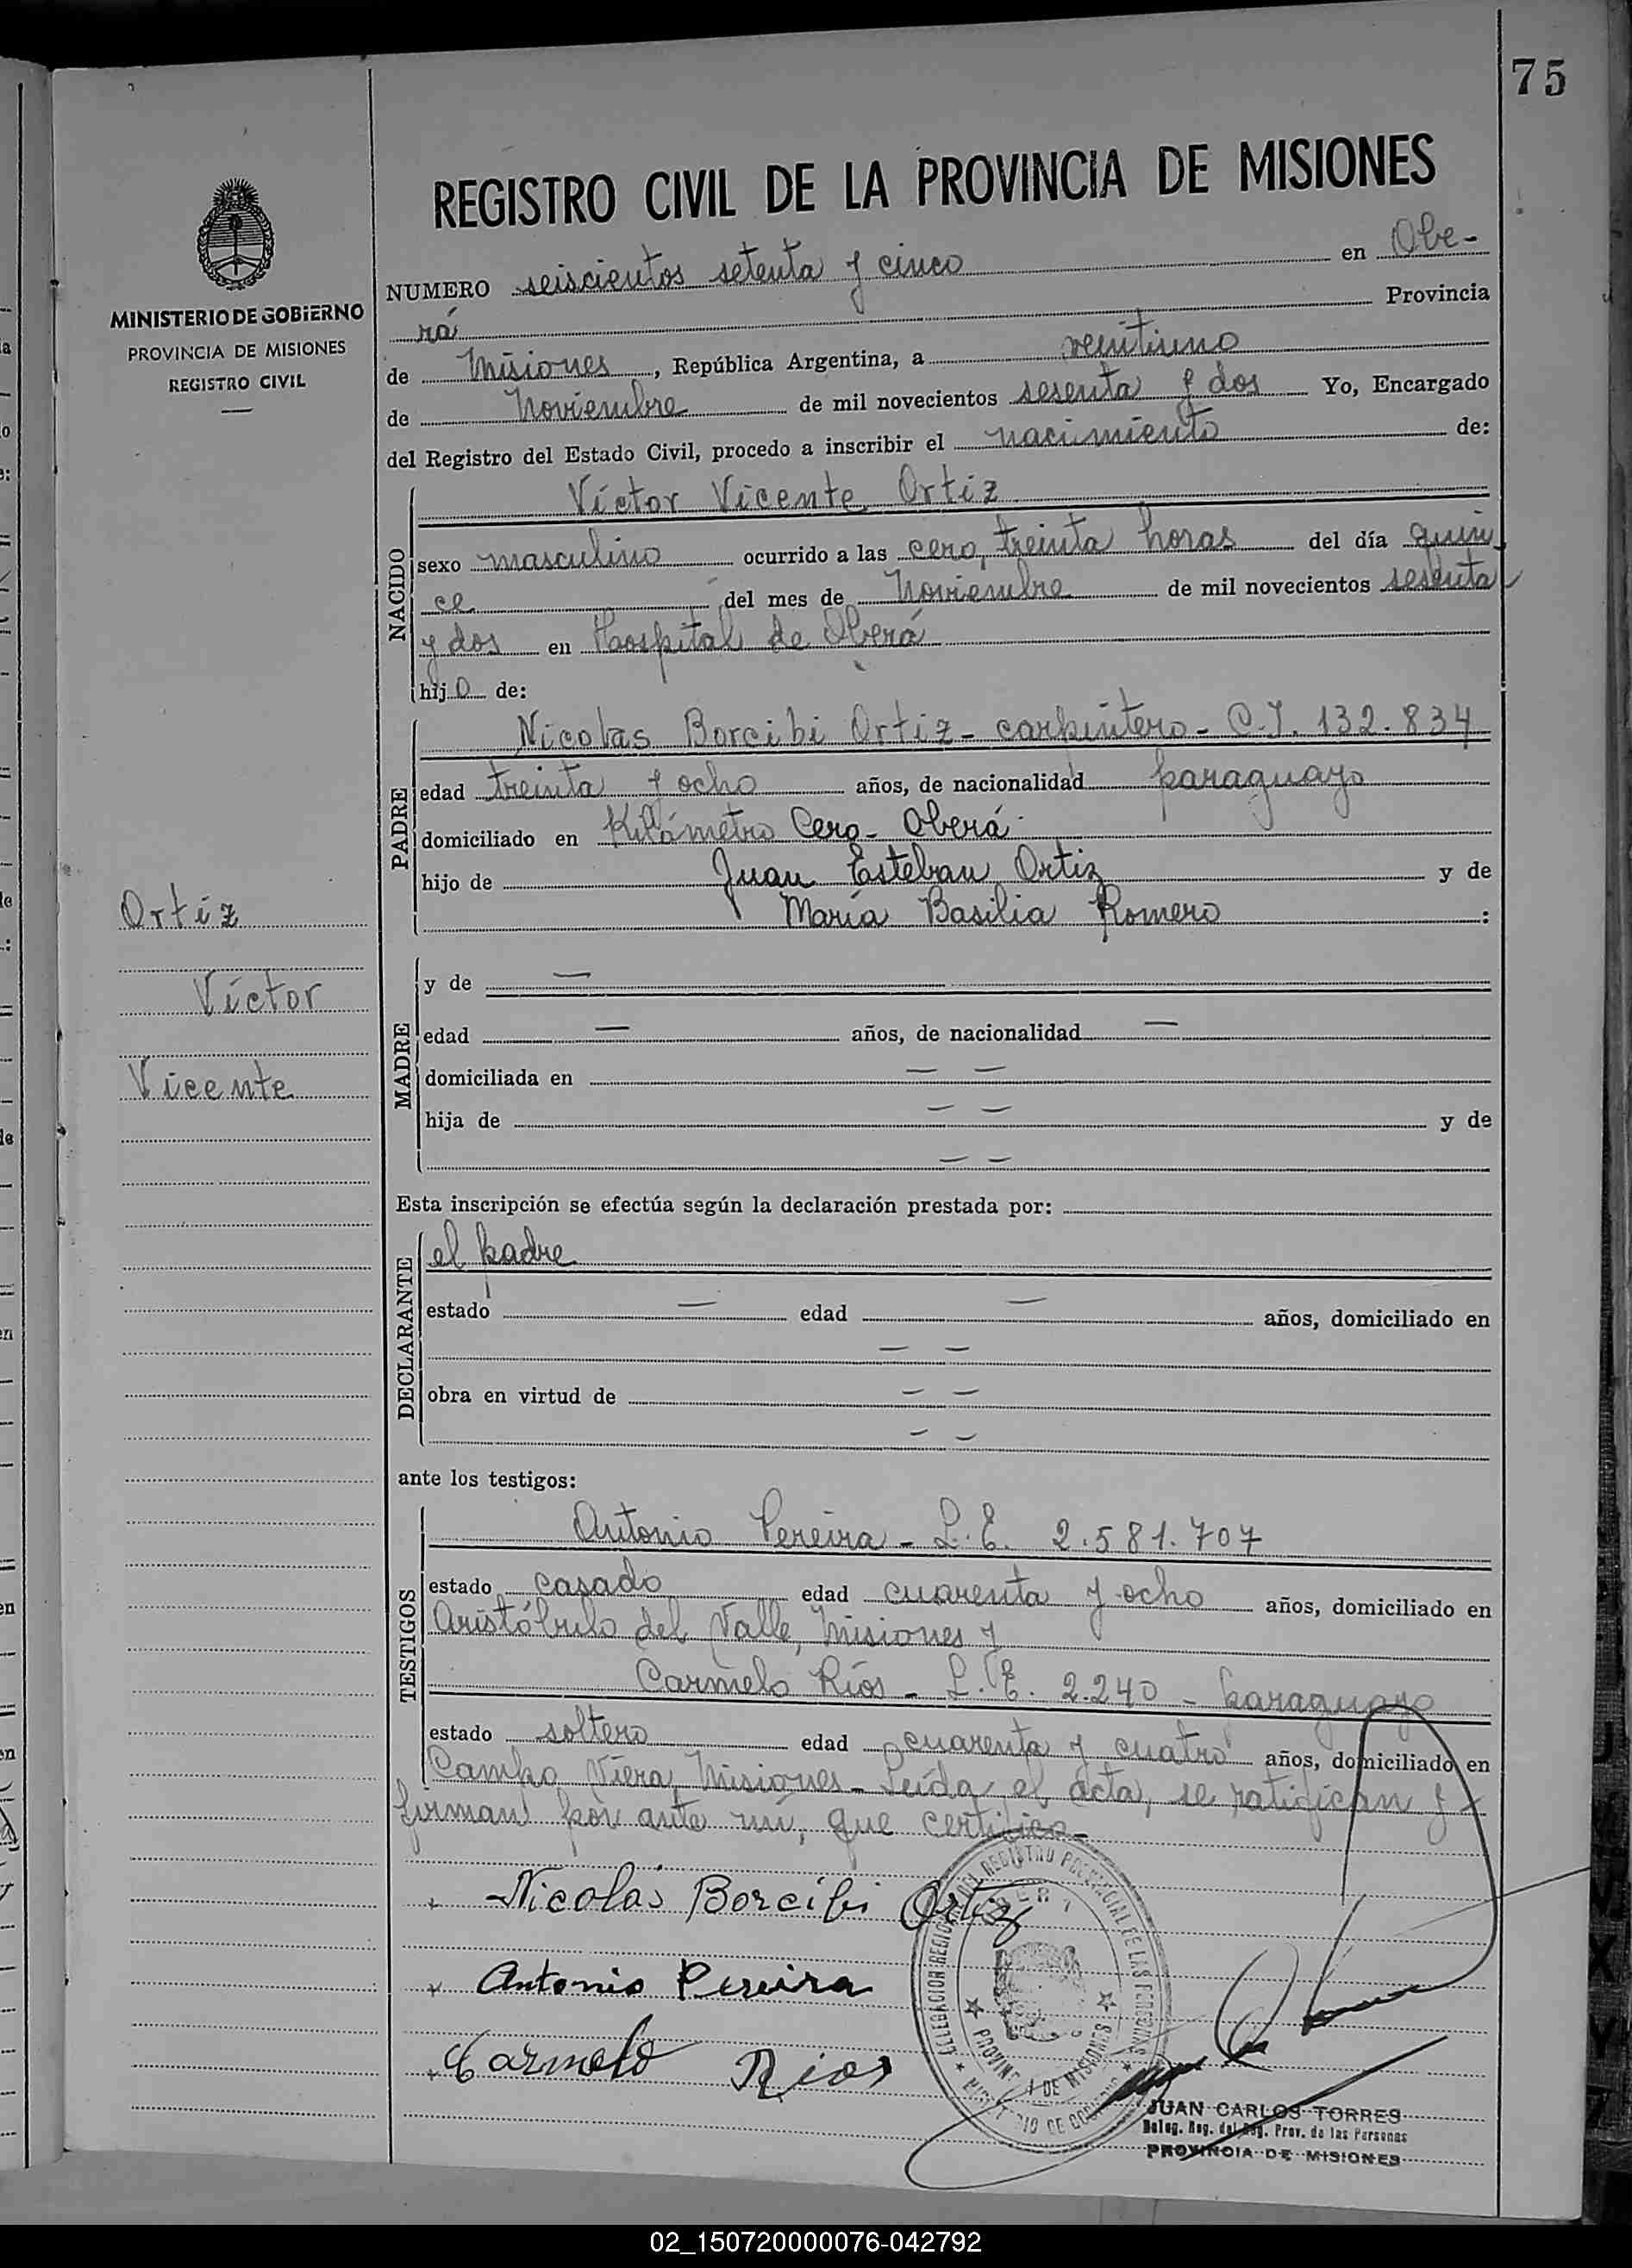 75
REGISTRO CIVIL DE LA PROVINCIA DE MISIONES
MINISTERIO DE GOBIERNO
PROVINCIA DE MISIONES
REGISTRO CIVIL
NUMERO seiscientos setenta y cinco en Obe-
rá Provincia
de Misiones, República Argentina, a veintiuno
de Noviembre de mil novecientos sesenta y dos Yo, Encargado
del Registro del Estado Civil, procedo a inscribir el nacimiento de:
NACIDO
Víctor Vicente Ortiz
sexo masculino ocurrido a las cero, treinta horas del día quin
ce del mes de Noviembre de mil novecientos sesenta
y dos en Hospital de Oberá
hijo de:
PADRE
Nicolas Borcibi Ortiz - carpintero - C.I. 132.834
edad treinta y ocho años, de nacionalidad paraguayo
domiciliado en Kilómetro Cero - Oberá
hijo de Juan Esteban Ortiz y de
María Basilia Romero :
Ortiz
Víctor
Vicente
MADRE
y de —
edad — años, de nacionalidad —
domiciliada en — —
hija de — — y de
— —
Esta inscripción se efectúa según la declaración prestada por:
DECLARANTE
el padre
estado — edad — años, domiciliado en
— —
obra en virtud de — —
— —
ante los testigos:
TESTIGOS
Antonio Pereira - L.E. 2.581.707
estado casado edad cuarenta y ocho años, domiciliado en
Aristóbulo del Valle, Misiones y
Carmelo Ríos - L.E. 2.240 - paraguayo
estado soltero edad cuarenta y cuatro años, domiciliado en
Campo Viera, Misiones - Leída el acta, se ratifican y
firman por ante mí, que certifico -
Nicolás Borcibi Ortiz
Antonio Pereira
Carmelo Rios
DELEGACION REGIONAL DEL REGISTRO PROVINCIAL DE LAS PERSONAS
PROVINCIA DE MISIONES
MINISTERIO DE GOBIERNO
JUAN CARLOS TORRES
Deleg. Reg. del Reg. Prov. de las Personas
PROVINCIA DE MISIONES
02_150720000076-042792